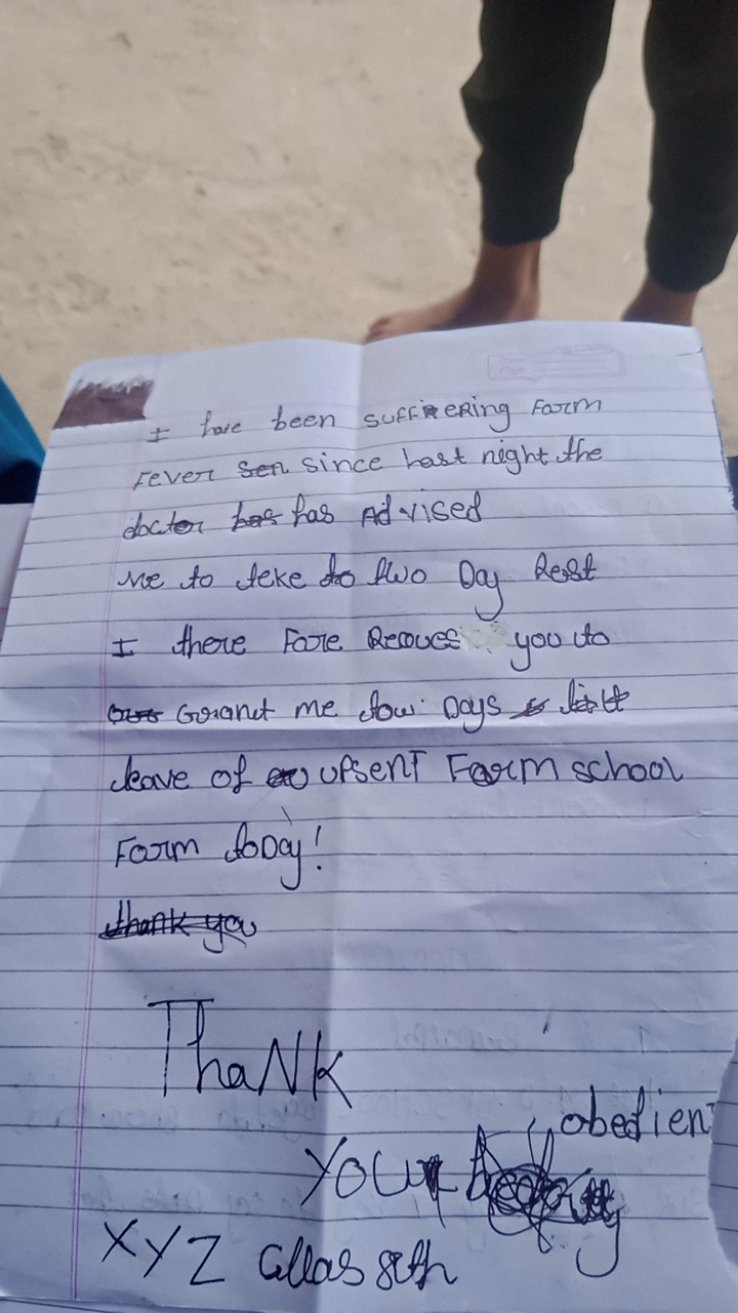 I have been suffering Farm
Fever sen since last night the
doctor has has Advised
Me to teke do two Day Rest
I there Fore you to
Goranet me tow Days
leave of upsent Farm school
Farm toDay!
thank you
ThaNK
obedient
your
XYZ Cllas 8th